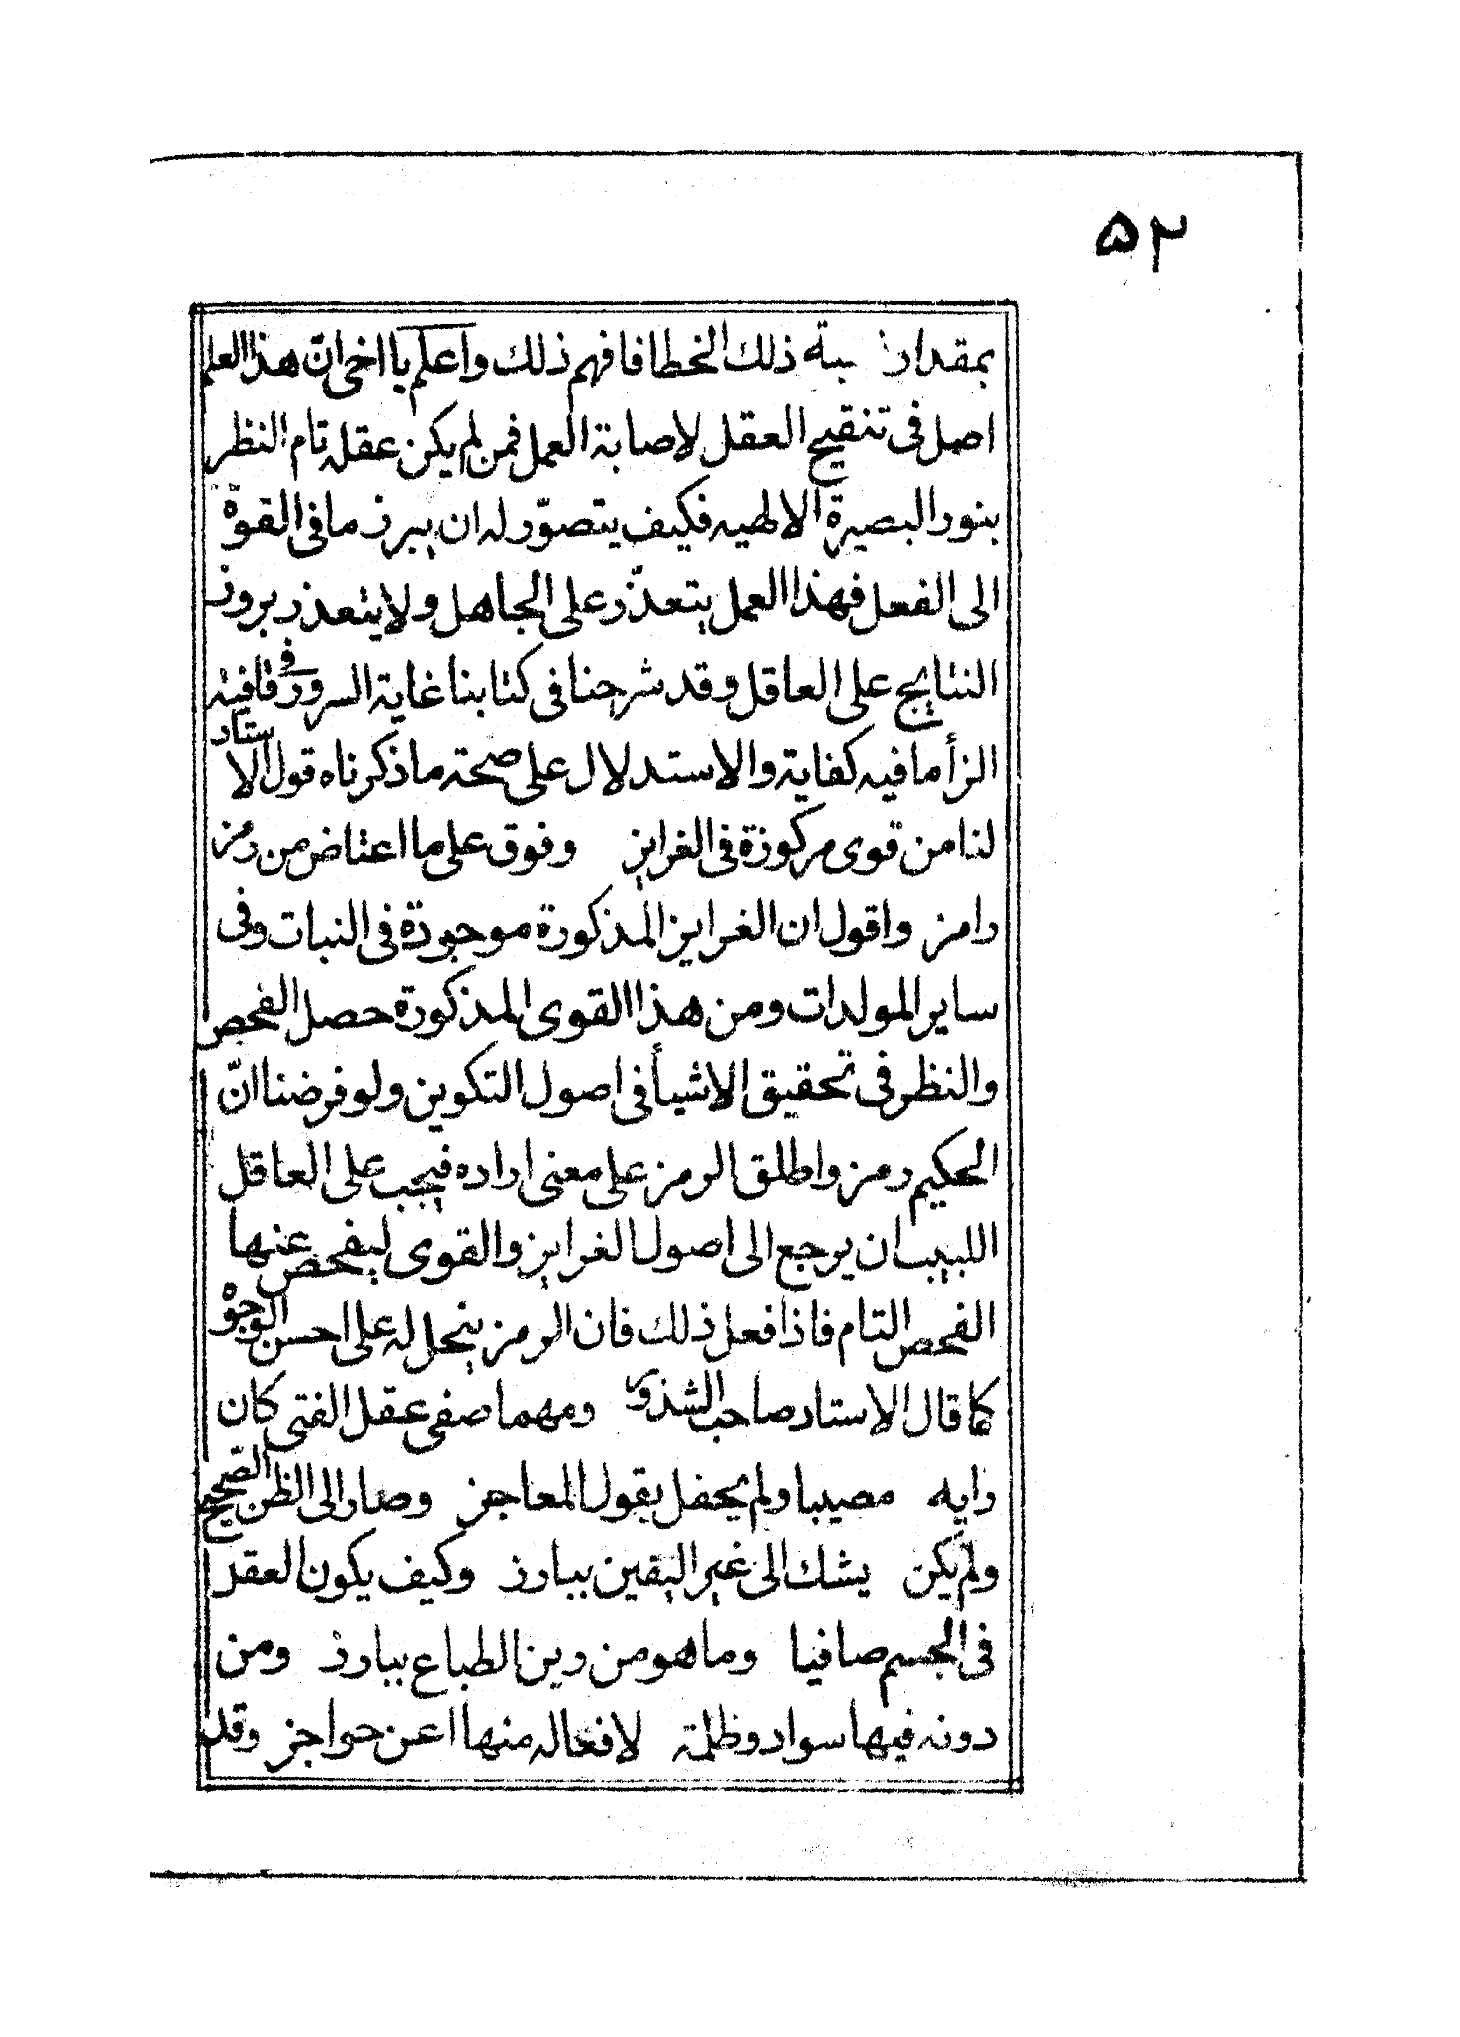 ٥٢
بمقدار نسبة ذلك الخطا فافهم ذلك واعلم يا اخى انّ هذا العلم
اصل فى تنقيح العقل لاصابة العمل فمن لم يكن عقله تام النظر
بنور البصيرة الالهيه فكيف يتصوّر له ان يبرز ما فى القوة
الى الفعل فهذا العمل يتعذّر على الجاهل ولا يتعذر بروز
النتايج على العاقل وقد شرحنا فى كتابنا غاية السرور فى قافية
الزأ ما فيه كفاية والاستدلال على صحة ما ذكرناه قول الاستاد
لنا من قوى مركوزة فى الغرايز وفوق على ما اعتاض من رمز
رامز واقول ان الغرايز المذكورة موجودة فى النبات وفى
ساير المولدات ومن هذا القوى المذكورة حصل الفحص
والنظر فى تحقيق الاشيأ فى اصول التكوين ولو فرضنا انّ
الحكيم رمز واطلق الرمز على معنى اراده فيجب على العاقل
اللبيب ان يرجع الى اصول الغرايز والقوى ليفحص عنها
الفحص التام فاذا فعل ذلك فان الرمز ينحل له على احسن الوجوه
كما قال الاستاد صاحب الشذور ومهما صفى عقل الفتى كان
رايه مصيبا ولم يحفل بقول المعاجز وصار الى الظن الصّحيح
ولم يكن يشك الى غير اليقين ببارز وكيف يكون العقل
فى الجسم صافيا وما هو من رين الطباع ببارز ومن
دونه فيها سواد وظلمة لافعاله منها اعن حواجز وقد